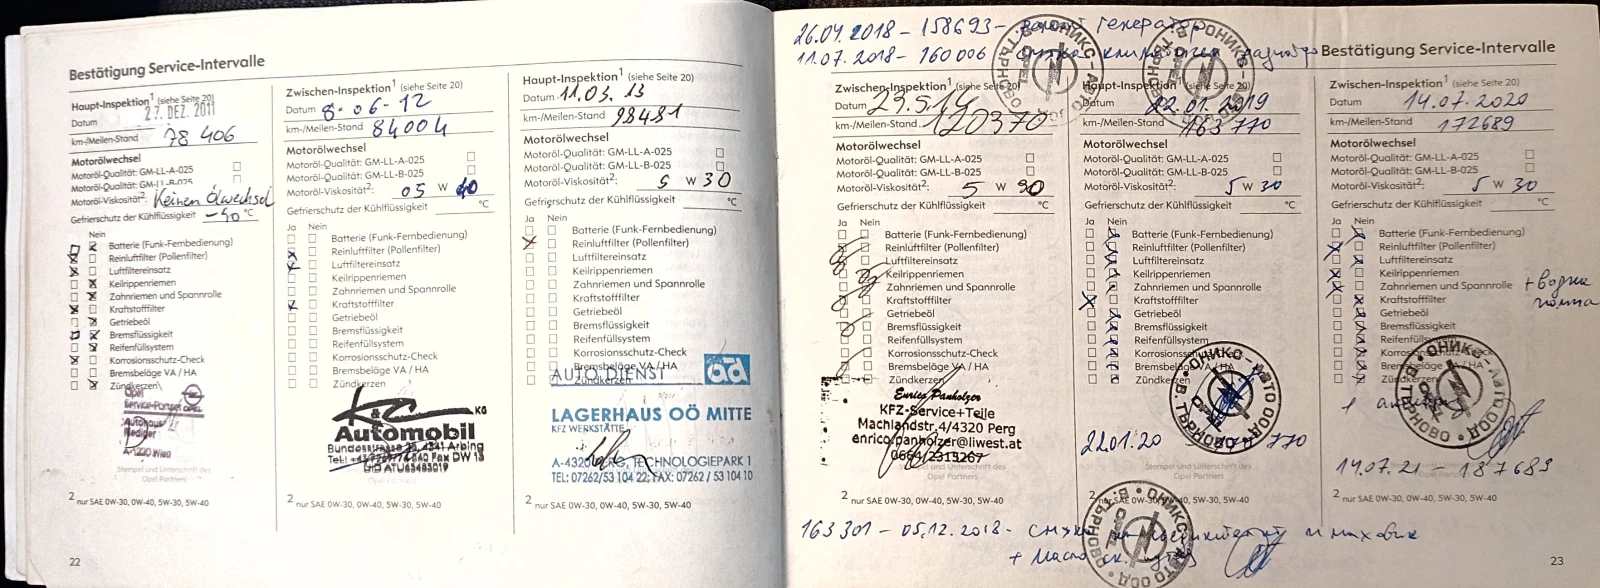 Bestätigung Service-Intervalle
Haupt-Inspektion¹ (siehe Seite 20)
Datum 27. DEZ. 2011
km-/Meilen-Stand 78 406
Motorölwechsel
Motoröl-Qualität: GM-LL-A-025
Motoröl-Qualität: GM-LL-B-025
Motoröl-Viskosität²: Keinen Ölwechsel
Gefrierschutz der Kühlflüssigkeit -40 °C
Nein
Batterie (Funk-Fernbedienung)
Reinluftfilter (Pollenfilter)
Luftfiltereinsatz
Keilrippenriemen
Zahnriemen und Spannrolle
Kraftstofffilter
Getriebeöl
Bremsflüssigkeit
Reifenfüllsystem
Korrosionsschutz-Check
Bremsbeläge VA / HA
Zündkerzen
Opel
Service-Partner
Autohaus
A-1220 Wien
Stempel und Unterschrift des
Opel Partners
² nur SAE 0W-30, 0W-40, 5W-30, 5W-40
22
Zwischen-Inspektion¹ (siehe Seite 20)
Datum 8-06-12
km-/Meilen-Stand 84004
Motorölwechsel
Motoröl-Qualität: GM-LL-A-025
Motoröl-Qualität: GM-LL-B-025
Motoröl-Viskosität²: 05 W 40
Gefrierschutz der Kühlflüssigkeit °C
Ja Nein
Batterie (Funk-Fernbedienung)
Reinluftfilter (Pollenfilter)
Luftfiltereinsatz
Keilrippenriemen
Zahnriemen und Spannrolle
Kraftstofffilter
Getriebeöl
Bremsflüssigkeit
Reifenfüllsystem
Korrosionsschutz-Check
Bremsbeläge VA / HA
Zündkerzen
K&C KG
Automobil
Bundesstrasse 4341 Arbing
Fax DW 13
UID ATU63483019
Opel Partners
² nur SAE 0W-30, 0W-40, 5W-30, 5W-40
Haupt-Inspektion¹ (siehe Seite 20)
Datum 11.03.13
km-/Meilen-Stand 98481
Motorölwechsel
Motoröl-Qualität: GM-LL-A-025
Motoröl-Qualität: GM-LL-B-025
Motoröl-Viskosität²: 5 W 30
Gefrierschutz der Kühlflüssigkeit °C
Ja Nein
Batterie (Funk-Fernbedienung)
Reinluftfilter (Pollenfilter)
Luftfiltereinsatz
Keilrippenriemen
Zahnriemen und Spannrolle
Kraftstofffilter
Getriebeöl
Bremsflüssigkeit
Reifenfüllsystem
Korrosionsschutz-Check
Bremsbeläge VA / HA
Zündkerzen
AUTO DIENST ad
LAGERHAUS OÖ MITTE
KFZ WERKSTÄTTE
A-4320 PERG, TECHNOLOGIEPARK 1
TEL: 07262/53 104 22, FAX: 07262 / 53 104 10
² nur SAE 0W-30, 0W-40, 5W-30, 5W-40
26.04.2018 - 158693 - генератор
11.07.2018 - 160006
Bestätigung Service-Intervalle
Zwischen-Inspektion¹ (siehe Seite 20)
Datum 29.5.14
km-/Meilen-Stand 120370
Motorölwechsel
Motoröl-Qualität: GM-LL-A-025
Motoröl-Qualität: GM-LL-B-025
Motoröl-Viskosität²: 5 W 30
Gefrierschutz der Kühlflüssigkeit °C
Ja Nein
Batterie (Funk-Fernbedienung)
Reinluftfilter (Pollenfilter)
Luftfiltereinsatz
Keilrippenriemen
Zahnriemen und Spannrolle
Kraftstofffilter
Getriebeöl
Bremsflüssigkeit
Reifenfüllsystem
Korrosionsschutz-Check
Bremsbeläge VA / HA
Zündkerzen
Enrico Panholzer
KFZ-Service+Teile
Machlandstr.4/4320 Perg
enrico.panholzer@liwest.at
0664/2313267
Stempel und Unterschrift des
Opel Partners
² nur SAE 0W-30, 0W-40, 5W-30, 5W-40
Haupt-Inspektion¹ (siehe Seite 20)
Datum 22.01.2019
km-/Meilen-Stand 163 770
Motorölwechsel
Motoröl-Qualität: GM-LL-A-025
Motoröl-Qualität: GM-LL-B-025
Motoröl-Viskosität²: 5 W 30
Gefrierschutz der Kühlflüssigkeit °C
Ja Nein
Batterie (Funk-Fernbedienung)
Reinluftfilter (Pollenfilter)
Luftfiltereinsatz
Keilrippenriemen
Zahnriemen und Spannrolle
Kraftstofffilter
Getriebeöl
Bremsflüssigkeit
Reifenfüllsystem
Korrosionsschutz-Check
Bremsbeläge VA / HA
Zündkerzen
ОНИКС-АВТО ООД • В. ТЪРНОВО •
OPEL
22.01.20 770
Stempel und Unterschrift des
Opel Partners
² nur SAE 0W-30, 0W-40, 5W-30, 5W-40
Zwischen-Inspektion¹ (siehe Seite 20)
Datum 14.07.2020
km-/Meilen-Stand 172689
Motorölwechsel
Motoröl-Qualität: GM-LL-A-025
Motoröl-Qualität: GM-LL-B-025
Motoröl-Viskosität²: 5 W 30
Gefrierschutz der Kühlflüssigkeit °C
Ja Nein
Batterie (Funk-Fernbedienung)
Reinluftfilter (Pollenfilter)
Luftfiltereinsatz
Keilrippenriemen
Zahnriemen und Spannrolle + водна
Kraftstofffilter помпа
Getriebeöl
Bremsflüssigkeit
Reifenfüllsystem
Korrosionsschutz-Check
Bremsbeläge VA / HA
Zündkerzen
ОНИКС-АВТО ООД • В. ТЪРНОВО •
OPEL
14.07.21 - 187689
² nur SAE 0W-30, 0W-40, 5W-30, 5W-40
163301 - 05.12.2018 - и маховик
+ масло
23